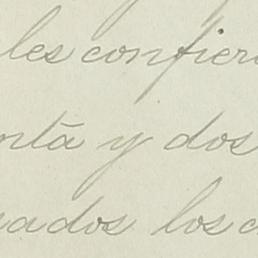 les confier
nta y dos
ados los